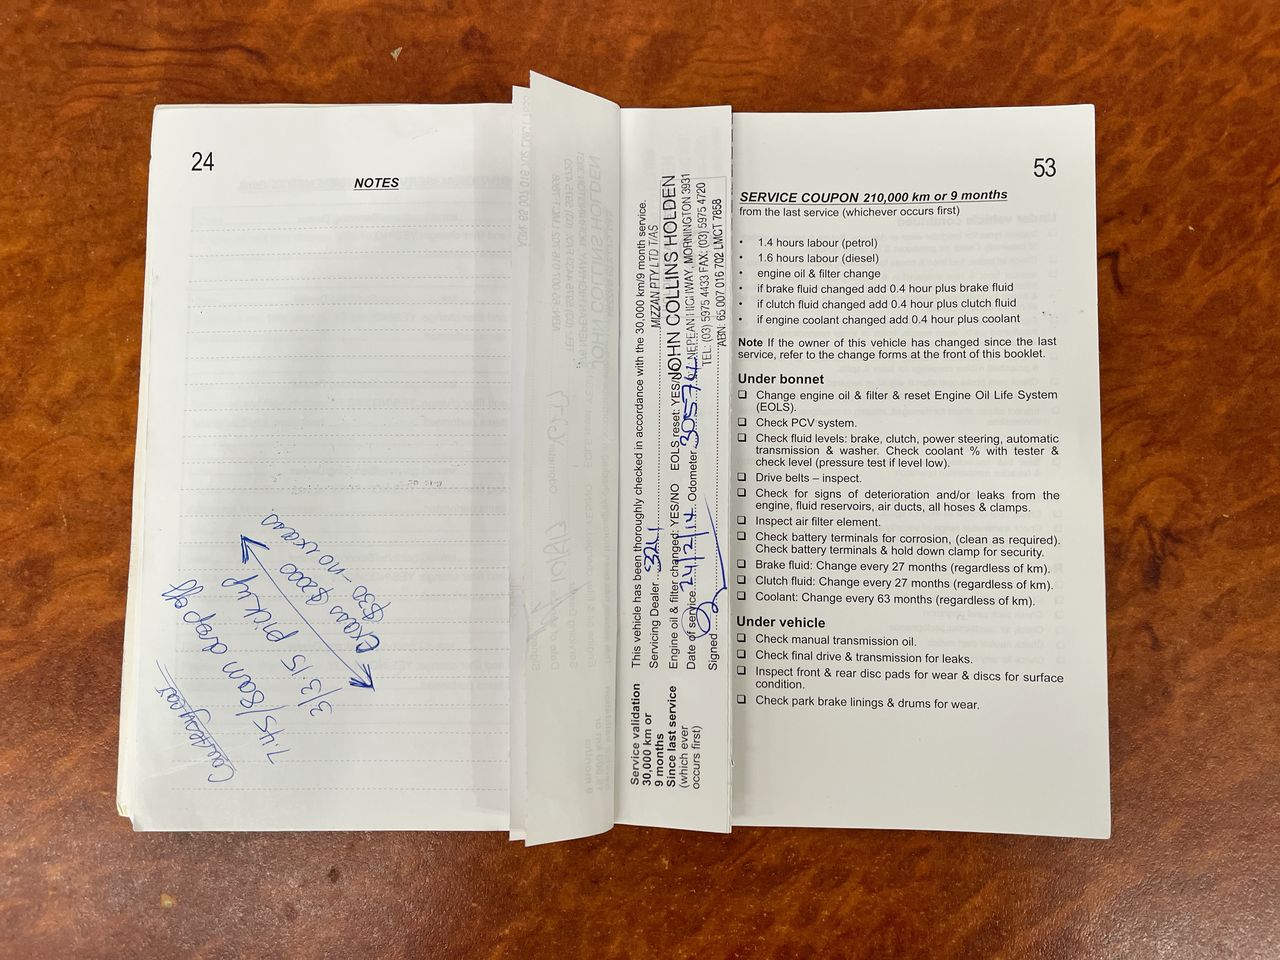 24
NOTES
Courtesy car
7.45/8am drop off
3/3.15 pick up
excess $2000
$330 - no excess
Service validation
30,000 km or
9 months
Since last service
(which ever
occurs first)
This vehicle has been thoroughly checked in accordance with the 30,000 km/9 month service.
Servicing Dealer 3241
MIZZAN PTY LTD T/AS
JOHN COLLINS HOLDEN
NEPEAN HIGHWAY, MORNINGTON 3931
TEL: (03) 5975 4433 FAX: (03) 5975 4720
ABN: 65 007 016 702 LMCT 7858
Engine oil & filter changed: YES/NO EOLS reset: YES/NO
Date of service 24/2/14 Odometer
Signed
53
SERVICE COUPON 210,000 km or 9 months
from the last service (whichever occurs first)
• 1.4 hours labour (petrol)
• 1.6 hours labour (diesel)
• engine oil & filter change
• if brake fluid changed add 0.4 hour plus brake fluid
• if clutch fluid changed add 0.4 hour plus clutch fluid
• if engine coolant changed add 0.4 hour plus coolant
Note If the owner of this vehicle has changed since the last
service, refer to the change forms at the front of this booklet.
Under bonnet
❑ Change engine oil & filter & reset Engine Oil Life System
(EOLS).
❑ Check PCV system.
❑ Check fluid levels: brake, clutch, power steering, automatic
transmission & washer. Check coolant % with tester &
check level (pressure test if level low).
❑ Drive belts – inspect.
❑ Check for signs of deterioration and/or leaks from the
engine, fluid reservoirs, air ducts, all hoses & clamps.
❑ Inspect air filter element.
❑ Check battery terminals for corrosion, (clean as required).
Check battery terminals & hold down clamp for security.
❑ Brake fluid: Change every 27 months (regardless of km).
❑ Clutch fluid: Change every 27 months (regardless of km).
❑ Coolant: Change every 63 months (regardless of km).
Under vehicle
❑ Check manual transmission oil.
❑ Check final drive & transmission for leaks.
❑ Inspect front & rear disc pads for wear & discs for surface
condition.
❑ Check park brake linings & drums for wear.